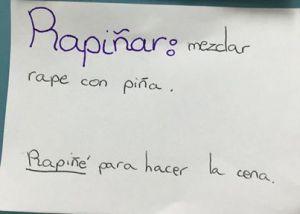 Rapiñar: mezclar
rape con piña.
Rapiñé para hacer la cena.